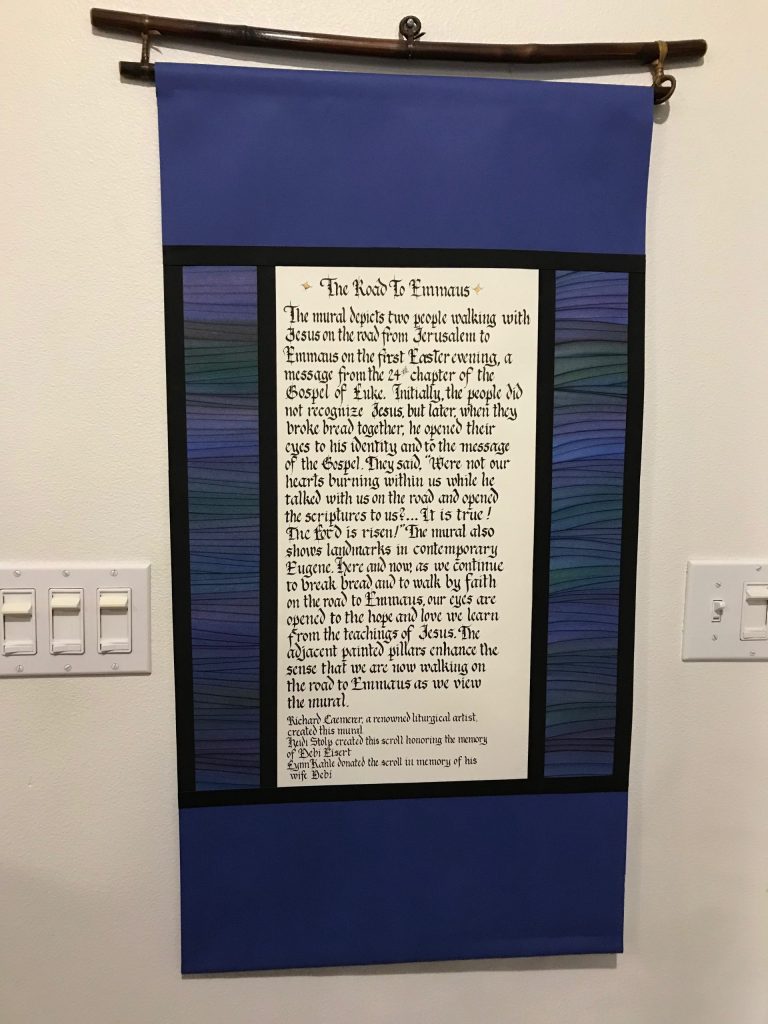 The Road To Emmaus
The mural depicts two people walking with
Jesus on the road from Jerusalem to
Emmaus on the first Easter evening, a
message from the 24th chapter of the
Gospel of Luke. Initially, the people did
not recognize Jesus, but later, when they
broke bread together, he opened their
eyes to his identity and to the message
of the Gospel. They said, "Were not our
hearts burning within us while he
talked with us on the road and opened
the scriptures to us?... It is true!
The Lord is risen!" The mural also
shows landmarks in contemporary
Eugene. Here and now, as we continue
to break bread and to walk by faith
on the road to Emmaus, our eyes are
opened to the hope and love we learn
from the teachings of Jesus. The
adjacent painted pillars enhance the
sense that we are now walking on
the road to Emmaus as we view
the mural.
Richard Caemerer, a renowned liturgical artist,
created this mural
Heidi Stolp created this scroll honoring the memory
of Debi Eisert
Lynn Kahle donated the scroll in memory of his
wife Debi